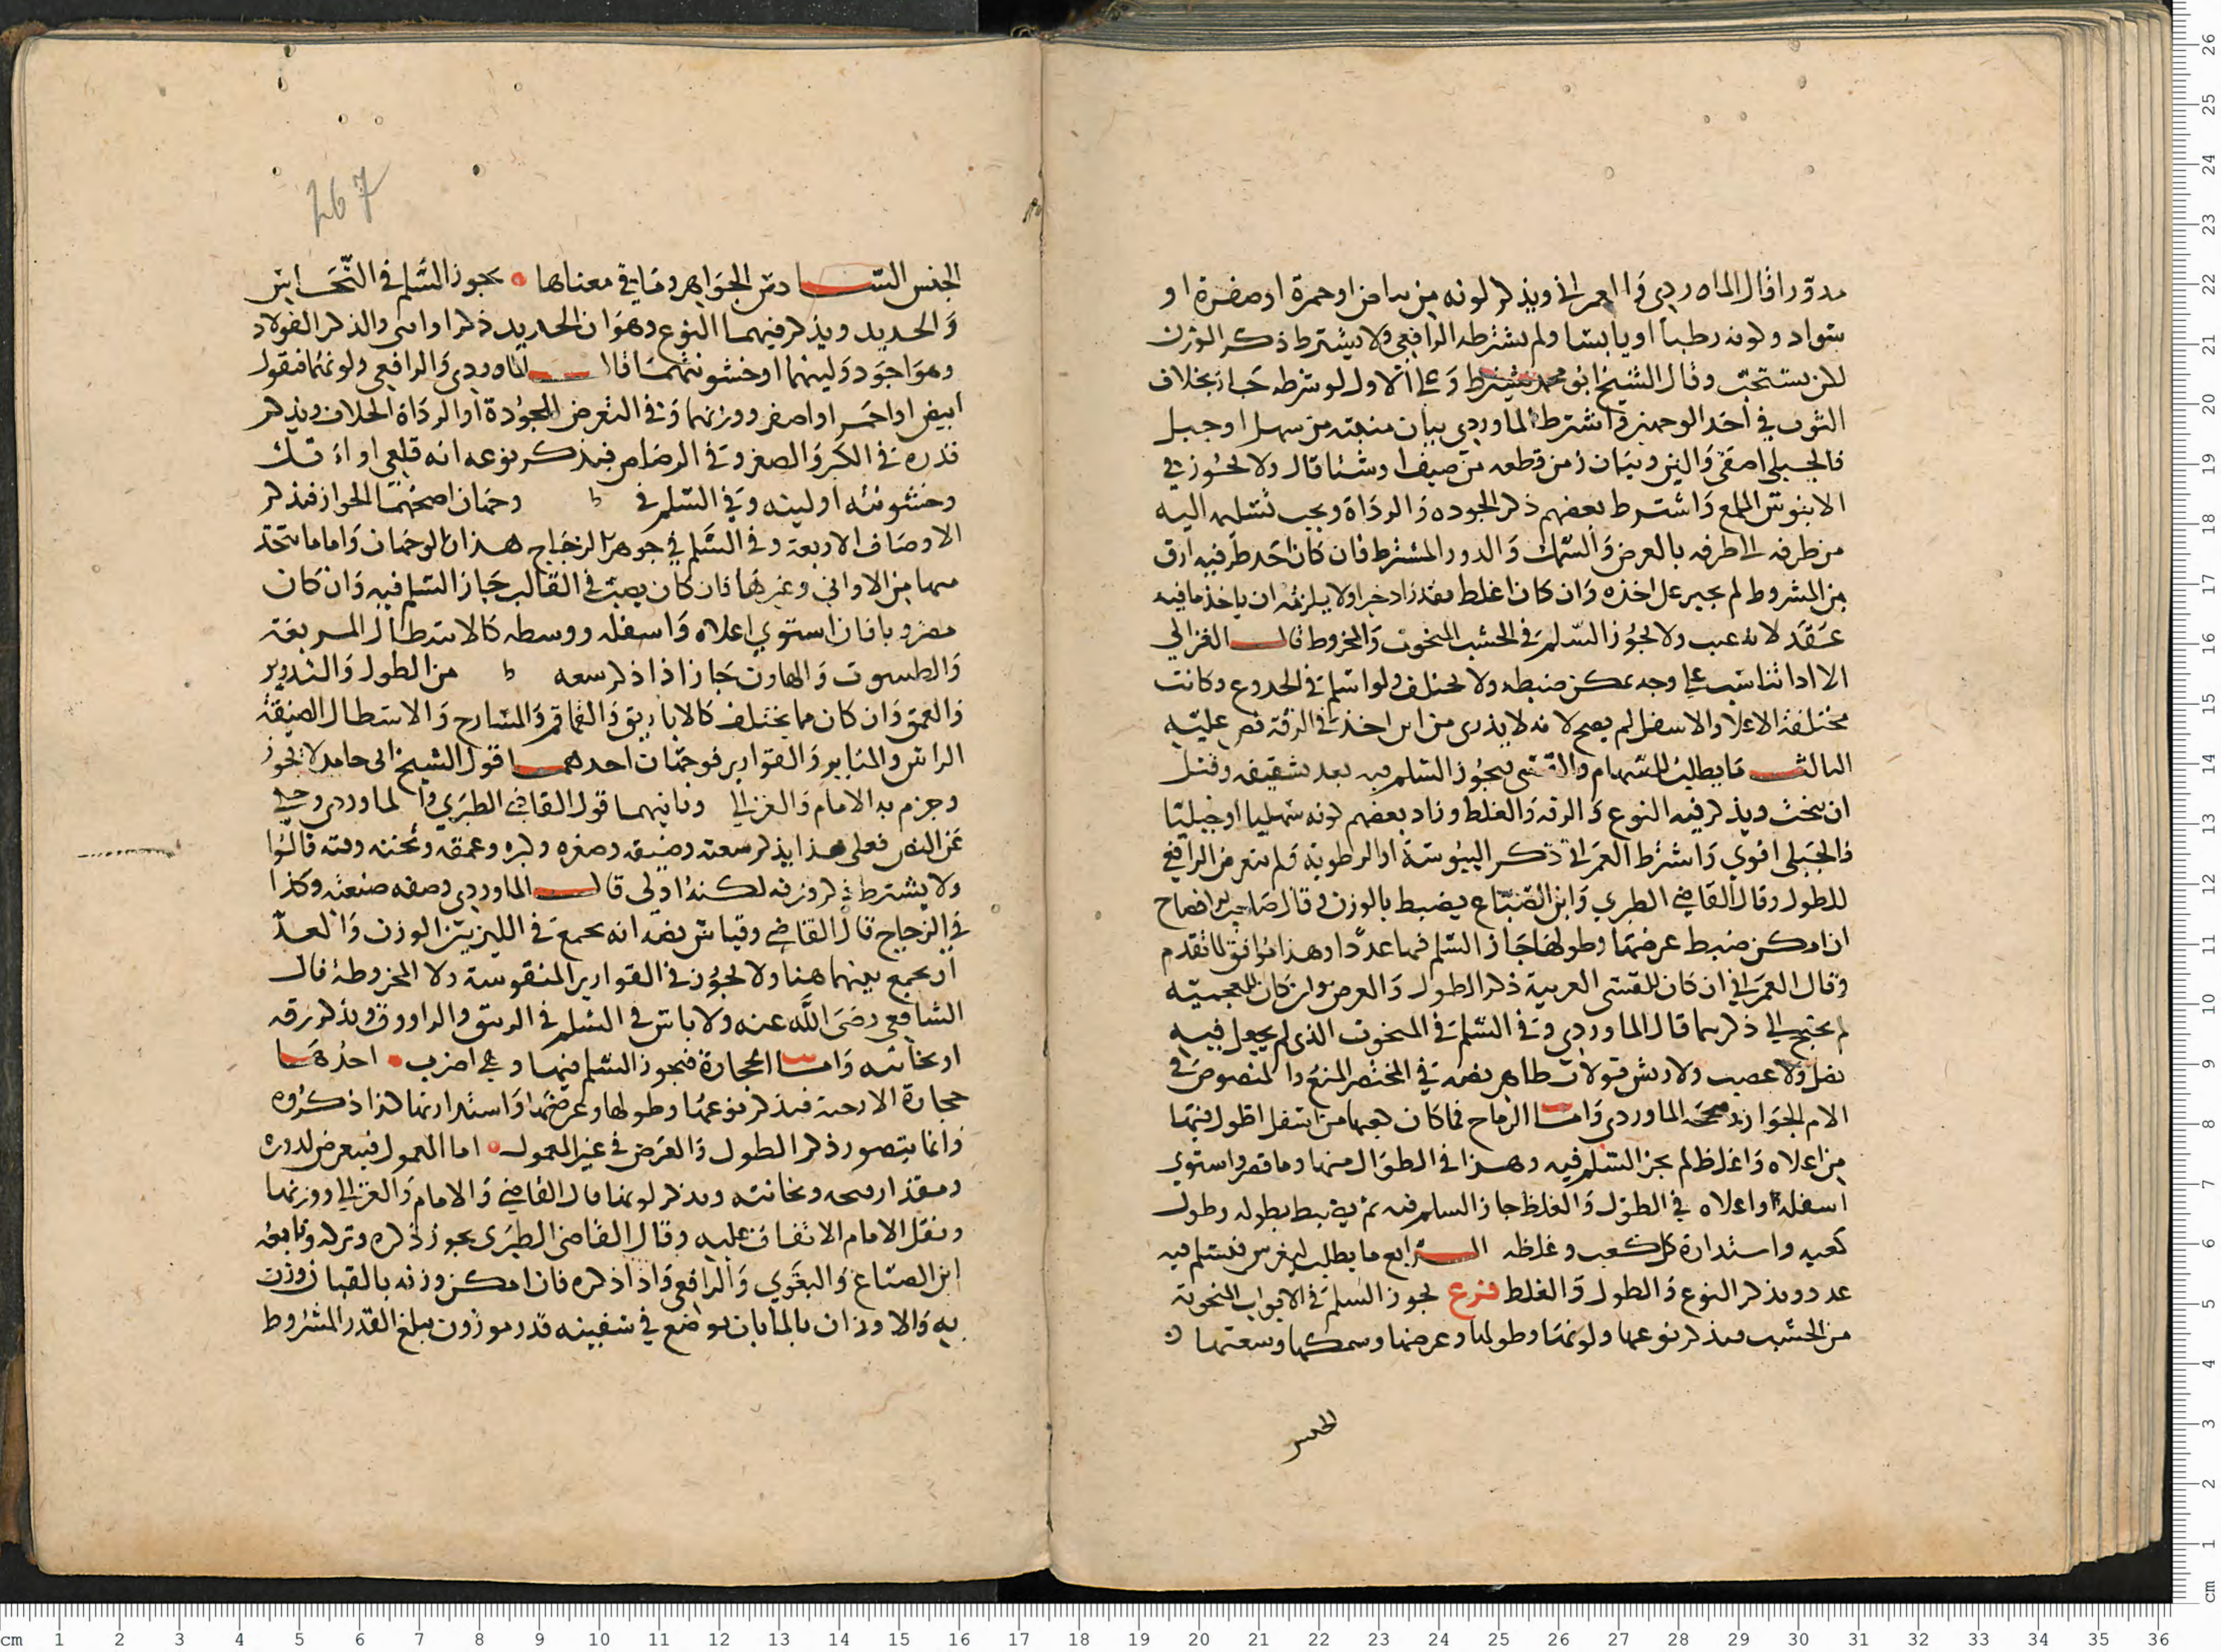 مدورا قال الماوردي والعمراني ويذكر لونه من بياض او حمرة او صفرة او
سواد وكونه رطبا او يابسا ولم يشترطه الرافعي ولا يشترط ذكر الوزن
لكن يستحب وقال الشيخ ابو محمد يشترط وعلى الاول لو شرطه جاز بخلاف
الثوب في احد الوجهين واشترط الماوردي بيان منبته من سهل او جبل
فالجبلي اصفى والين وبيان زمن قطعه من صيف او شتا قال ولا يجوز في
الابنوس الملمع واشترط بعضهم ذكر الجوده والرداة ويجب تسليمه اليه
من طرفه الى طرفه بالعرض والسمك والدور المشترط فان كان احد طرفيه ارق
من المشروط لم يجبر على اخذه وان كان اغلظ فقد زاد خيرا ولا يلزمه ان ياخذ ما فيه
عقد لانه عيب ولا يجوز السلم في الخشب المنحوت والمخروط قال الغزالي
الا اذا تناسب على وجه يمكن ضبطه ولا يختلف ولو اسلم في الجدوع وكانت
مختلفة الاعلا والاسفل لم يصح لانه لا يدرى من اين اخذت في الدقة نص عليه
الثالث ما يطلب للسهام والقسي فيجوز السلم فيه بعد تشقيفه وقبل
ان ينحت ويذكر فيه النوع والدقه والغلظ وزاد بعضهم كونه سهليا او جبليا
فالجبلي اقوي واشترط العمراني ذكر اليبوسة او الرطوبة ولم يتعرض الرافعي
للطول وقال القاضي الطبري وابن الصباغ يضبط بالوزن وقال صاحب الافصاح
ان امكن ضبط عرضها وطولها جاز السلم فيها عددا وهذا موافق لما تقدم
وقال العمراني ان كان للقسي العربية ذكر الطول والعرض وان كان للعجمية
لم يحتج الى ذكرهما قال الماوردي وفي السلم في المنحوت الذي لم يجعل فيه
نصل ولا عصب ولا ريش قولان ظاهر نصه في المختصر المنع والمنصوص في
الام الجواز وصححه الماوردي واما الرماح فما كان كعبها من اسفل اطول منها
من اعلاه واغلظ لم يجز السلم فيه وهذا في الطوال منها وما قصر واستوي
اسفله واعلاه في الطول والغلظ جاز السلم فيه ثم يضبط بطوله وطول
كعبه واستدارة كل كعب وغلظه الرابع ما يطلب ليغرس فيسلم فيه
عددا ويذكر النوع والطول والغلظ فرع يجوز السلم في الابواب المنحوتة
من الخشب فيذكر نوعها ولونها وطولها وعرضها وسمكها وسعتها
الجنس
267
الجنس السادس الجواهر وما في معناها يجوز السلم في النحاس
والحديد ويذكر فيهما النوع وهو ان الحديد ذكر او انثى والذكر الفولاد
وهو اجود ولينهما او خشونتهما قال الماوردي والرافعي ولونهما فيقول
ابيض او احمر او اصفر ووزنهما وفي التعرض للجودة او الرداة الخلاف ويذكر
قدره في الكبر والصغر وفي الرصاص فيذكر نوعه انه قلعي او انك
وخشونته او لينه وفي السلم في وجهان اصحهما الجواز فيذكر
الاوصاف الاربعة وفي السلم في جوهر الزجاج هذان الوجهان واما ما يتخذ
منها من الاواني وغيرها فان كان يصب في القالب جاز السلم فيه وان كان
مضروبا فان استوي اعلاه واسفله ووسطه كالاسطال المربعة
والطسوت والهاون جاز اذا ذكر سعه من الطول والتدوير
والعمق وان كان مما يختلف كالاباريق والقماقم والمسارج والاسطال الضيقة
الراس والمنابر والقوارير فوجهان احدهما قول الشيخ ابي حامد لا يجوز
وجزم به الامام والغزالي وثانيهما قول القاضي الطبري والماوردي وحكي
عن النص فعلى هذا يذكر سعته وضيقه وصغره وكبره وعمقه وثخنته ودقته قالوا
ولا يشترط ذكر وزنه لكنه اولى قال الماوردي وصفه صنعته وكذا
في الزجاج قال القاضي وقياس نصه انه يجمع في اللبن بين الوزن والعد
ان يجمع بينهما هنا ولا يجوز في القوارير المنقوشة ولا المخروطة قال
الشافعي رضي الله عنه ولا باس في السلم في الدبق والراووق ويذكر رقه
او ثخانته واما الحجارة فيجوز السلم فيها وهي اضرب احدها
حجارة الارحية فيذكر نوعها وطولها وعرضها واستدارتها كذا ذكروه
وانما يتصور ذكر الطول والعرض في غير المعمول اما المعمول فيتعرض لدوره
ومقدار فتحه وثخانته ويذكر لونها قال القاضي والامام والغزالي ووزنها
ونقل الامام الاتفاق عليه وقال القاضي الطبري يجوز ذكره وتركه وتابعه
ابن الصباغ والبغوي والرافعي واذا ذكره فان امكن وزنه بالقبان وزن
به والا وزن بالما بان يوضع في سفينه قدر موزون يبلغ القدر المشروط